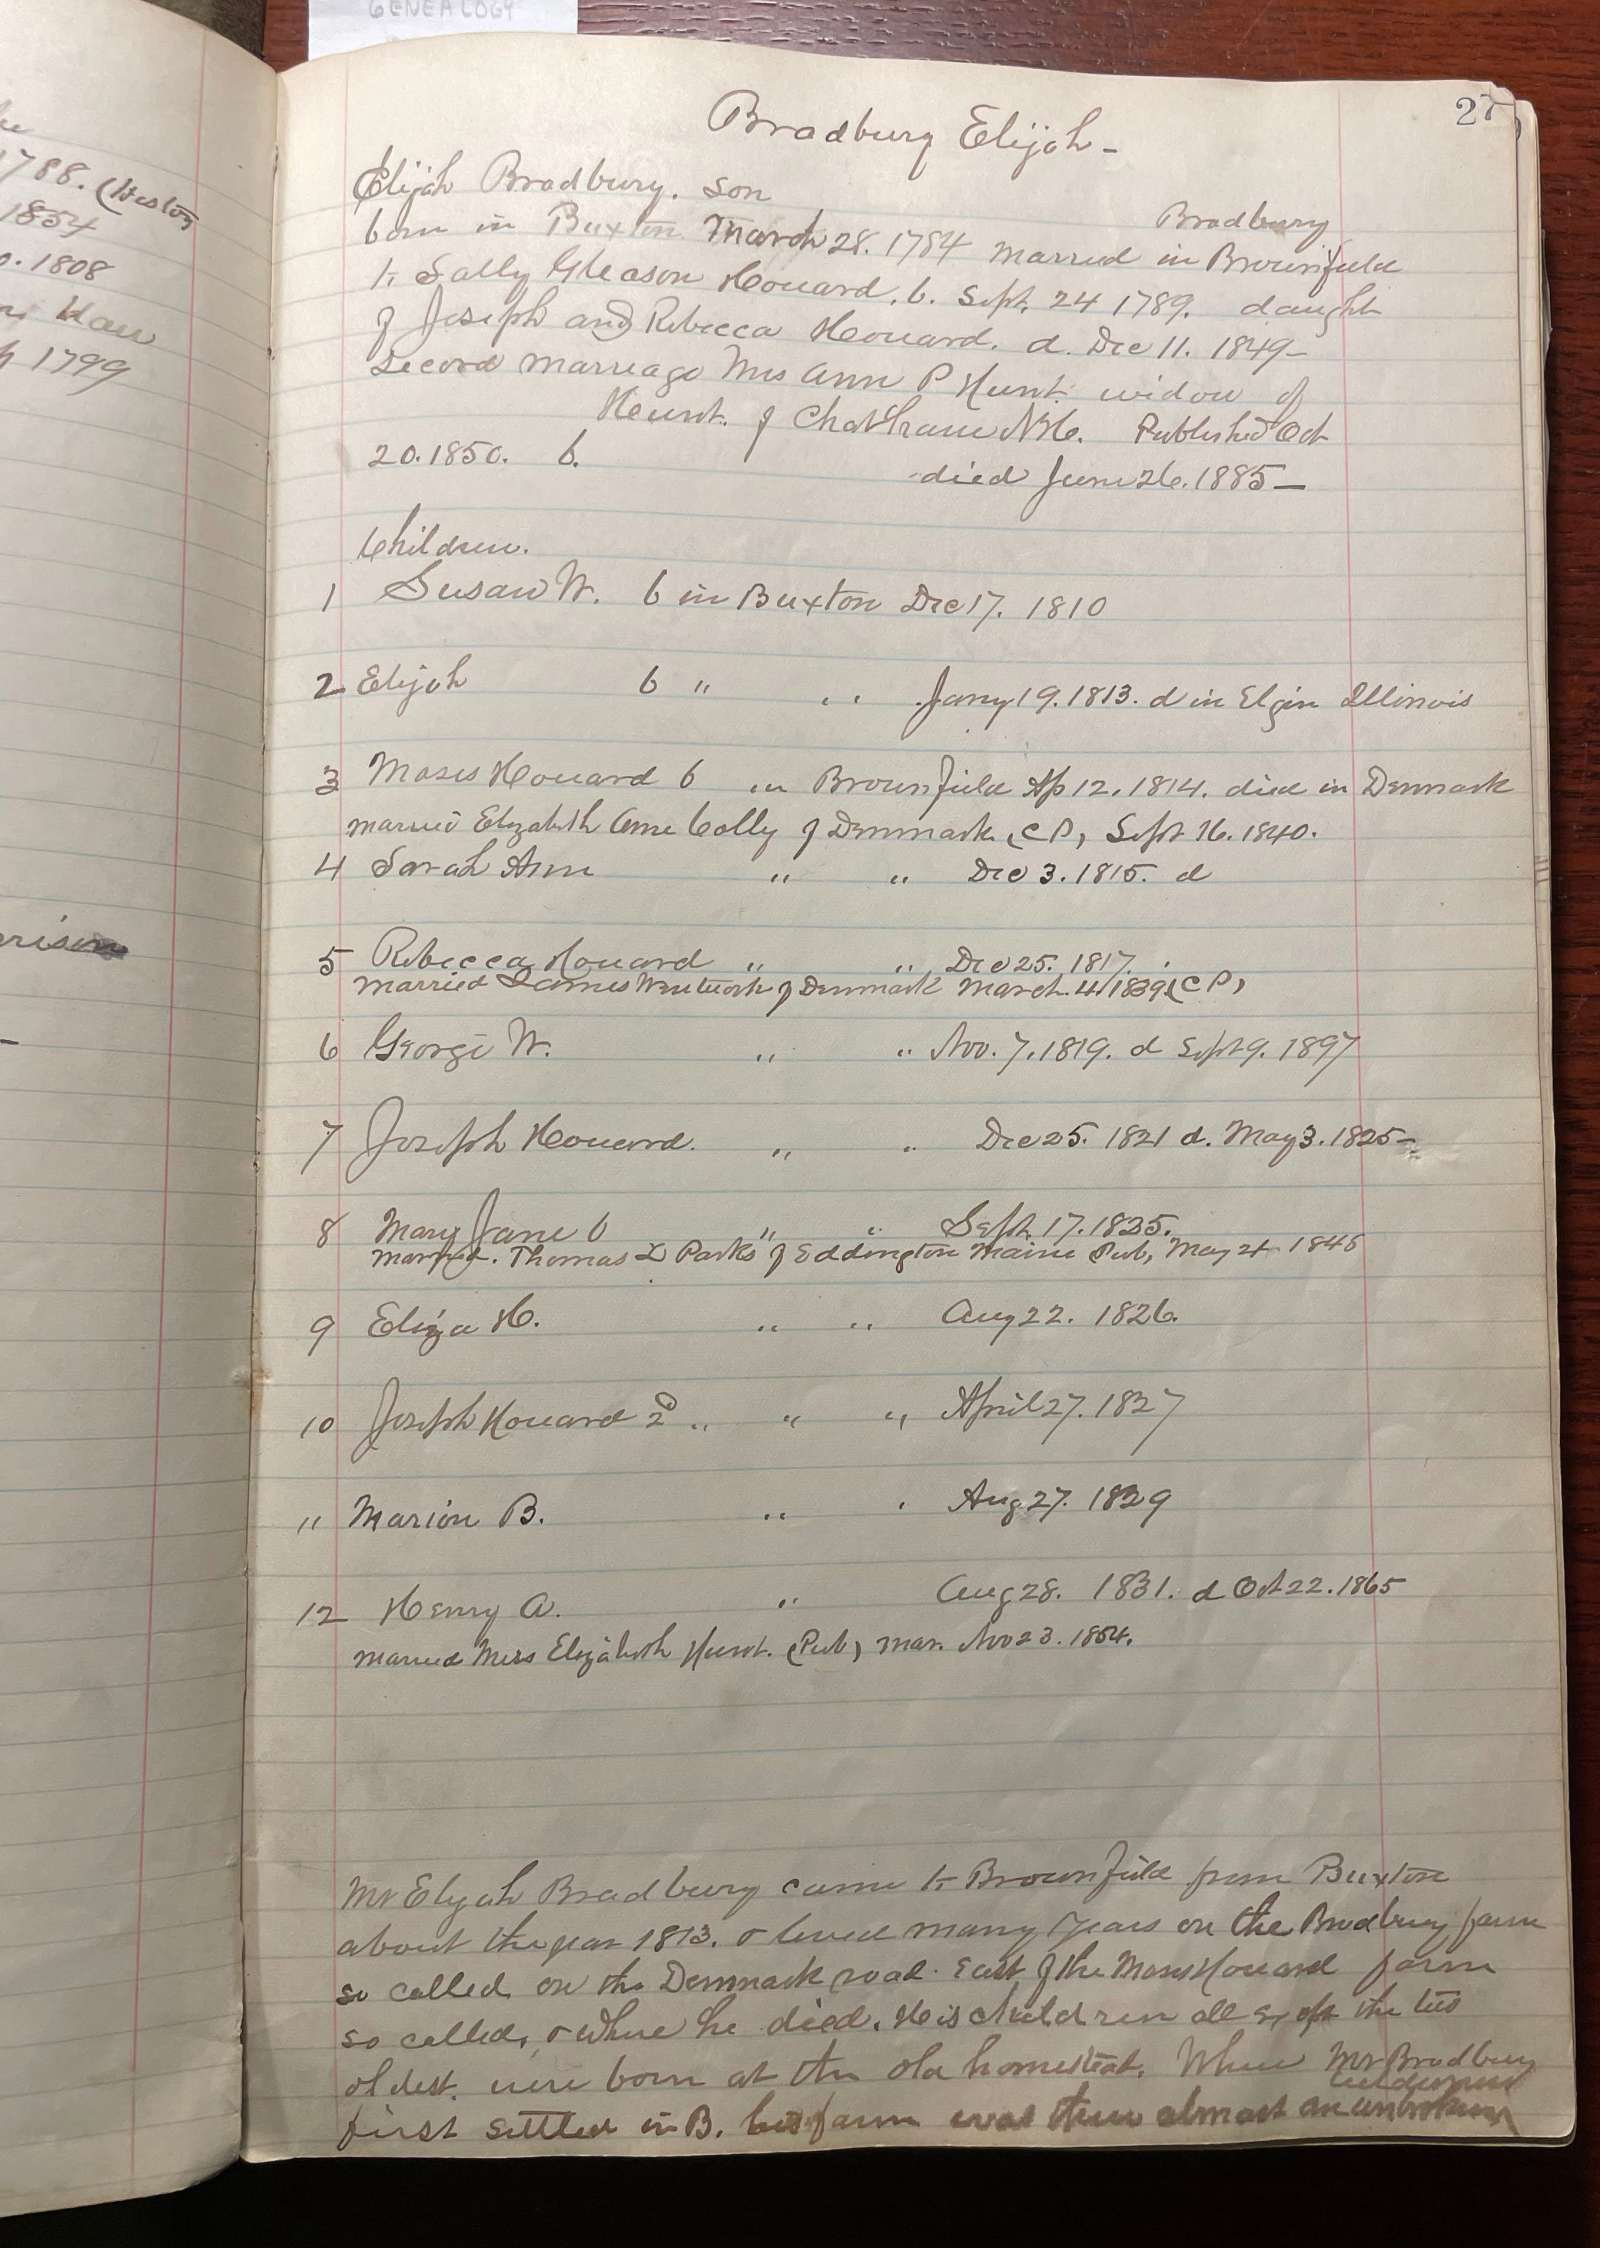 GENEALOGY
27
1788. (Heston
1854
1808
1799
Bradbury Elijah -
Elijah Bradbury. son
Bradbury
born in Buxton March 28. 1784 married in Brownfield
to Sally Gleason Howard. b. Sept. 24 1789. daught
of Joseph and Rebecca Howard. d. Dec 11. 1849 -
Second marriage Mrs Ann P Hunt widow of
Hunt. of Chatham N H. Published Oct
20. 1850. b.
died June 26. 1885 -
Children.
1 Susan W. b in Buxton Dec 17. 1810
2 Elijah b " " Jany 19. 1813. d in Elgin Illinois
3 Moses Howard b in Brownfield Ap 12. 1814. died in Denmark
married Elizabeth Ann Colby of Denmark (C P) Sept 16. 1840.
4 Sarah Ann " " Dec 3. 1815. d
5 Rebecca Howard " " Dec 25. 1817.
married James Wentworth of Denmark March 4 1839 (C P)
6 George W. " " Nov. 7. 1819. d Sept 9. 1897
7 Joseph Howard. " " Dec 25. 1821 d. May 3. 1825 -
8 Mary Jane b " " Sept. 17. 1825.
married. Thomas Parks of Eddington Maine Pub, May
9 Eliza H. " " Aug 22. 1826.
10 Joseph Howard 2d " " " April 27. 1827
11 Marion B. " " Aug 27. 1829
12 Henry A. " Aug 28. 1831. d Oct 22. 1865
married Miss Elizabeth Hunt. (Pub) mar. Nov 23. 1854.
Mr Elijah Bradbury came to Brownfield from Buxton
about the year 1813. & lived many years on the Bradbury farm
so called on the Denmark road. East of the Moses Howard farm
so called, & where he died. His children all except the two
oldest. were born at the old homestead. When Mr Bradbury
first settled in B. his farm was then almost an unbroken